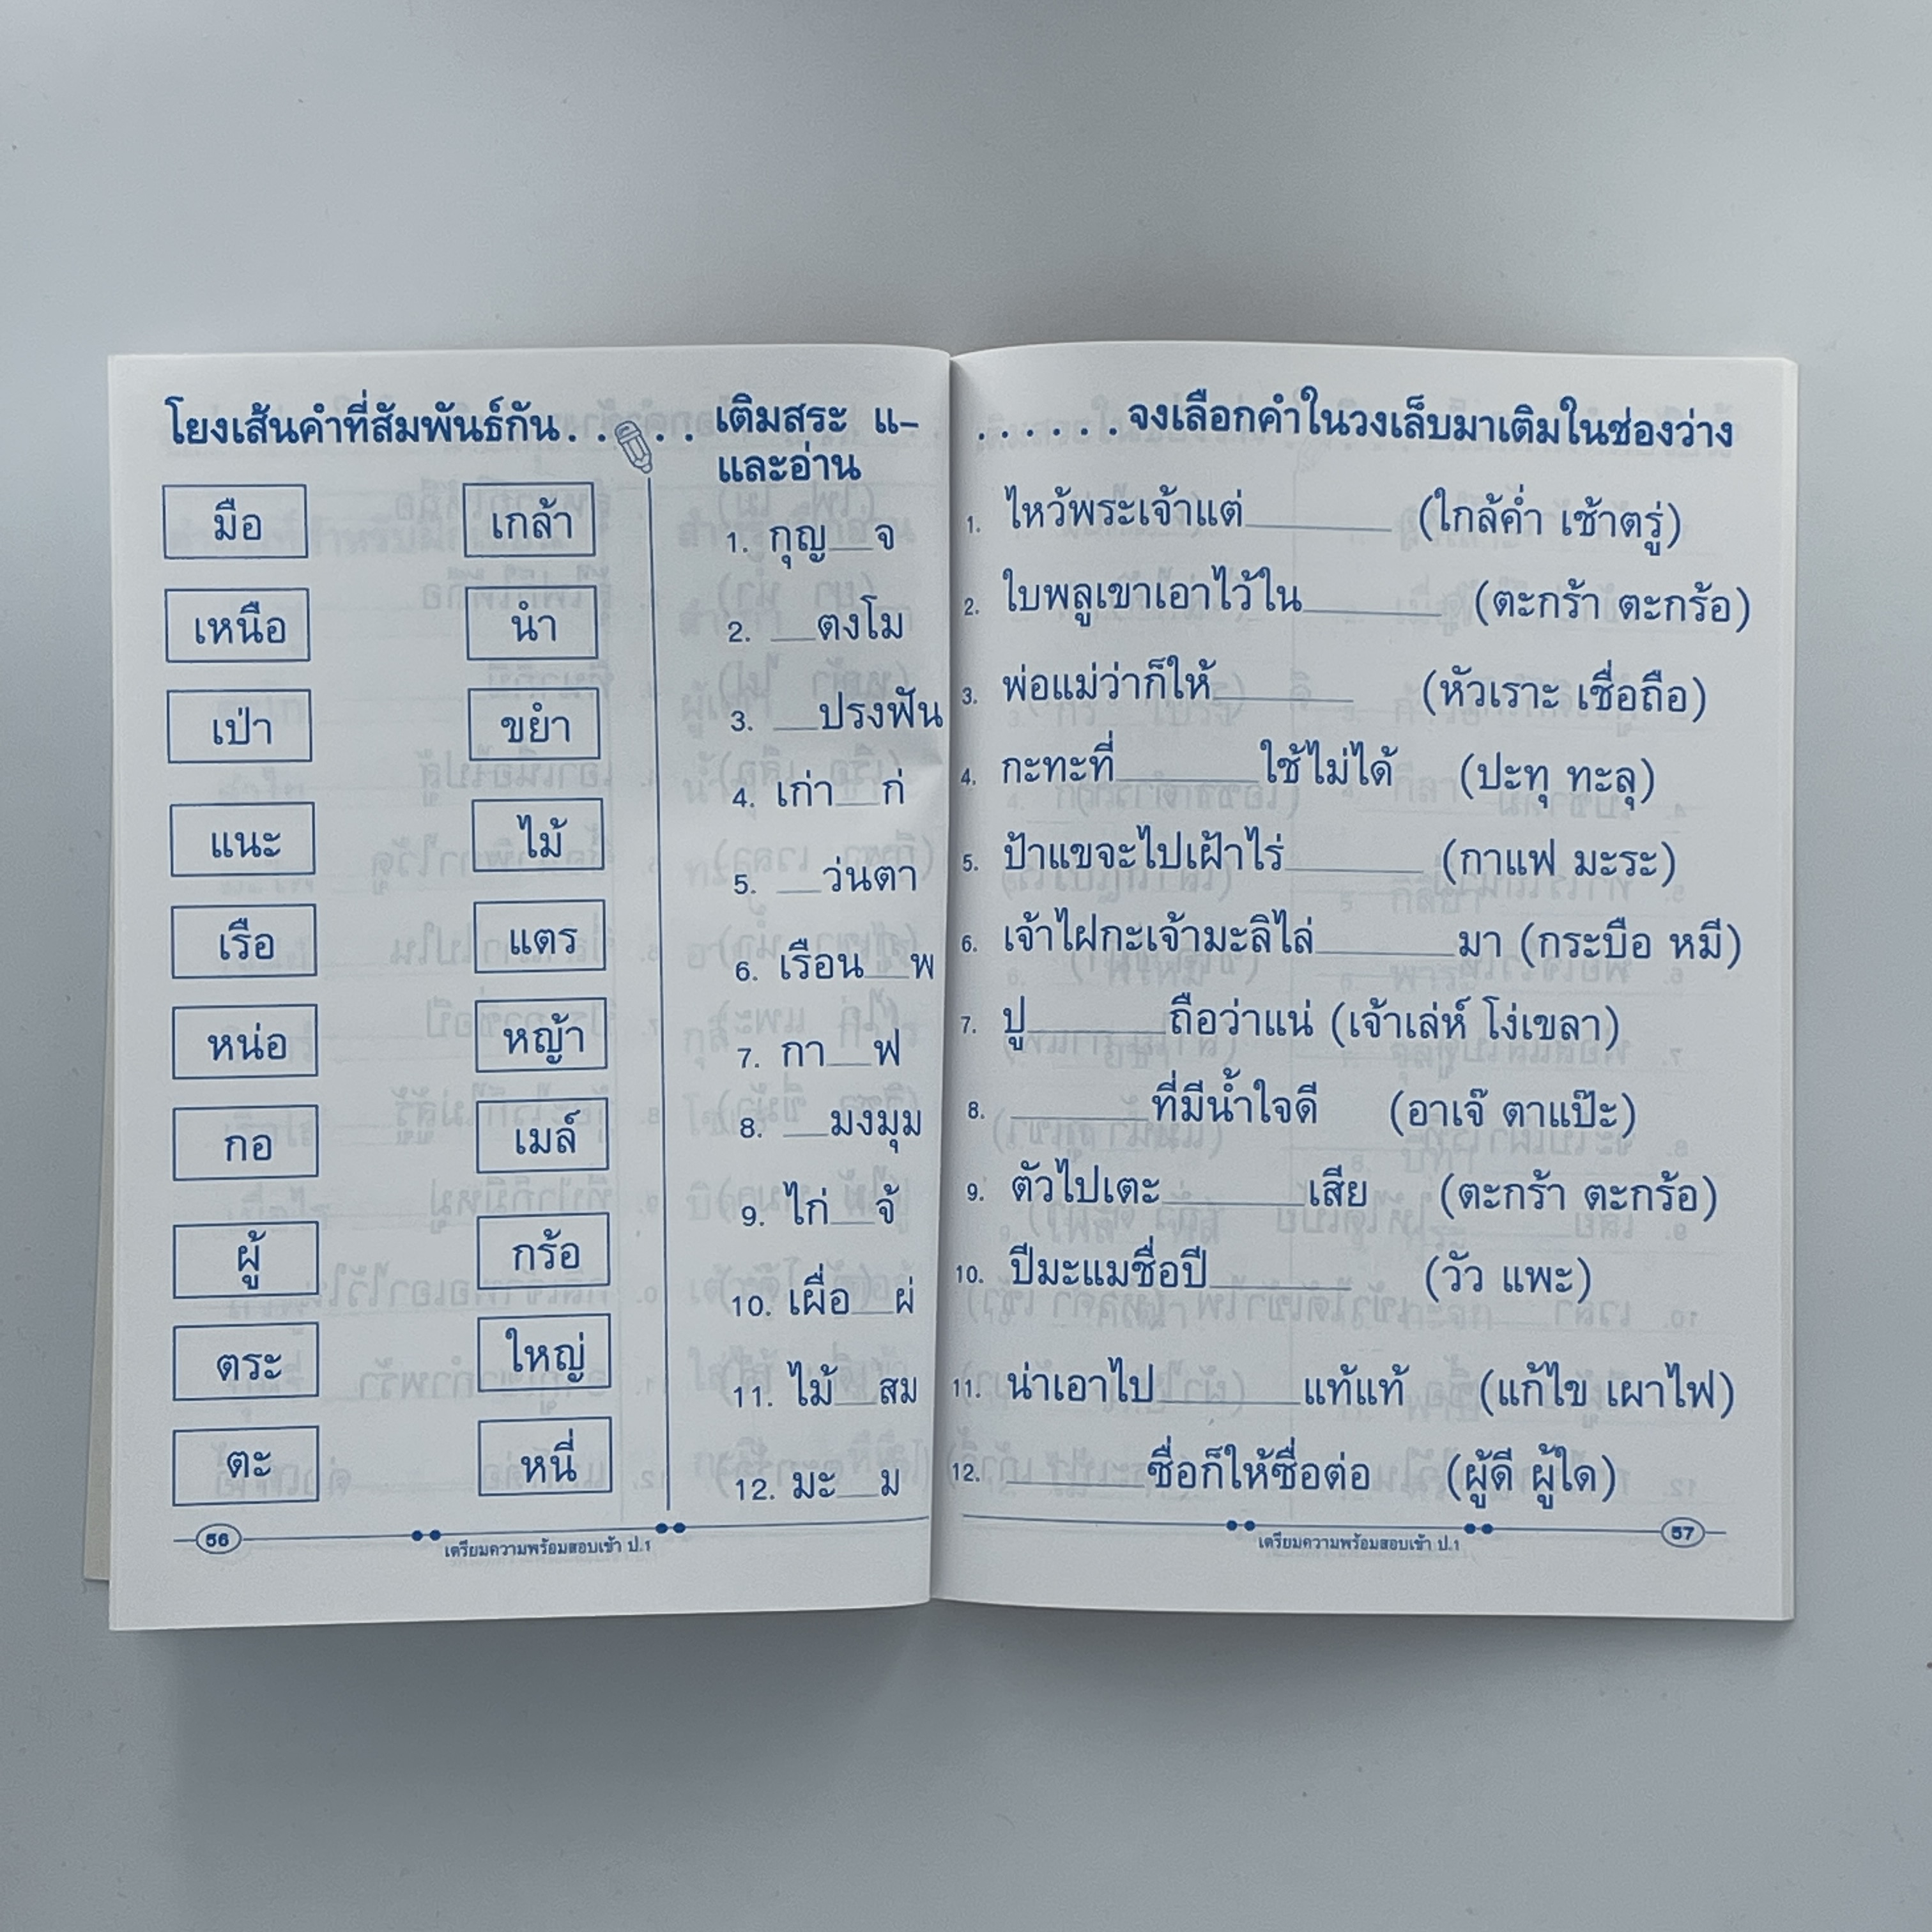 โยงเส้นคำที่สัมพันธ์กัน. . . . .
มือ เกล้า
เหนือ นำ
เป่า ขยำ
แนะ ไม้
เรือ แตร
หน่อ หญ้า
กอ เมล์
ผู้ กร้อ
ตระ ใหญ่
ตะ หนี่
เติมสระ แ–
และอ่าน
1. กุญ__จ
2. __ตงโม
3. __ปรงฟัน
4. เก่า__ก่
5. __ว่นตา
6. เรือน__พ
7. กา__ฟ
8. __มงมุม
9. ไก่__จ้
10. เผื่อ__ผ่
11. ไม้__สม
12. มะ__ม
56
เตรียมความพร้อมสอบเข้า ป.1
. . . . . . จงเลือกคำในวงเล็บมาเติมในช่องว่าง
1. ไหว้พระเจ้าแต่______ (ใกล้ค่ำ เช้าตรู่)
2. ใบพลูเขาเอาไว้ใน______ (ตะกร้า ตะกร้อ)
3. พ่อแม่ว่าก็ให้______ (หัวเราะ เชื่อถือ)
4. กะทะที่______ใช้ไม่ได้ (ปะทุ ทะลุ)
5. ป้าแขจะไปเฝ้าไร่______ (กาแฟ มะระ)
6. เจ้าไฝกะเจ้ามะลิไล่______มา (กระบือ หมี)
7. ปู______ถือว่าแน่ (เจ้าเล่ห์ โง่เขลา)
8. ______ที่มีน้ำใจดี (อาเจ๊ ตาแป๊ะ)
9. ตัวไปเตะ______เสีย (ตะกร้า ตะกร้อ)
10. ปีมะแมชื่อปี______ (วัว แพะ)
11. น่าเอาไป______แท้แท้ (แก้ไข เผาไฟ)
12. ______ซื่อก็ให้ซื่อต่อ (ผู้ดี ผู้ใด)
เตรียมความพร้อมสอบเข้า ป.1
57